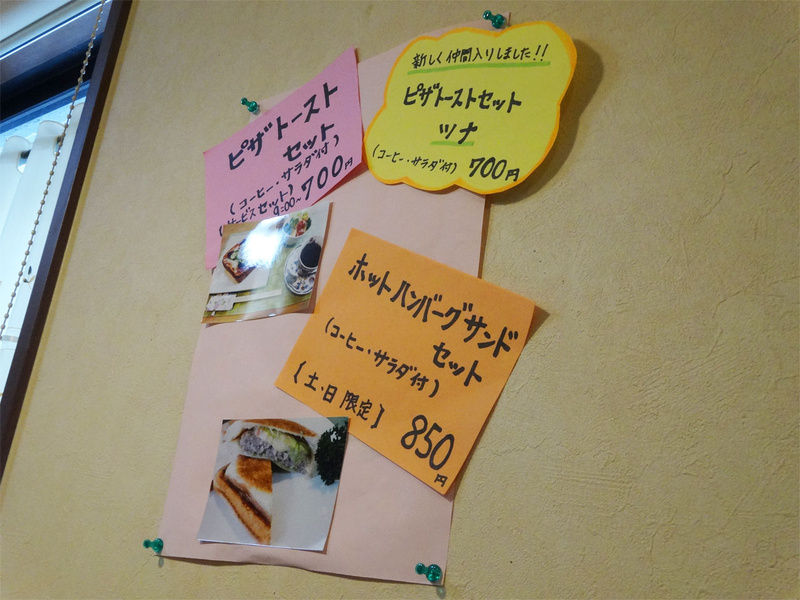 ピザトースト
セット
(コーヒー・サラダ付)
(サービスセット)
9:00~700円
新しく仲間入りしました!!
ピザトーストセット
ツナ
(コーヒー・サラダ付) 700円
ホットハンバーグサンド
セット
(コーヒー・サラダ付)
[土・日限定]
850円